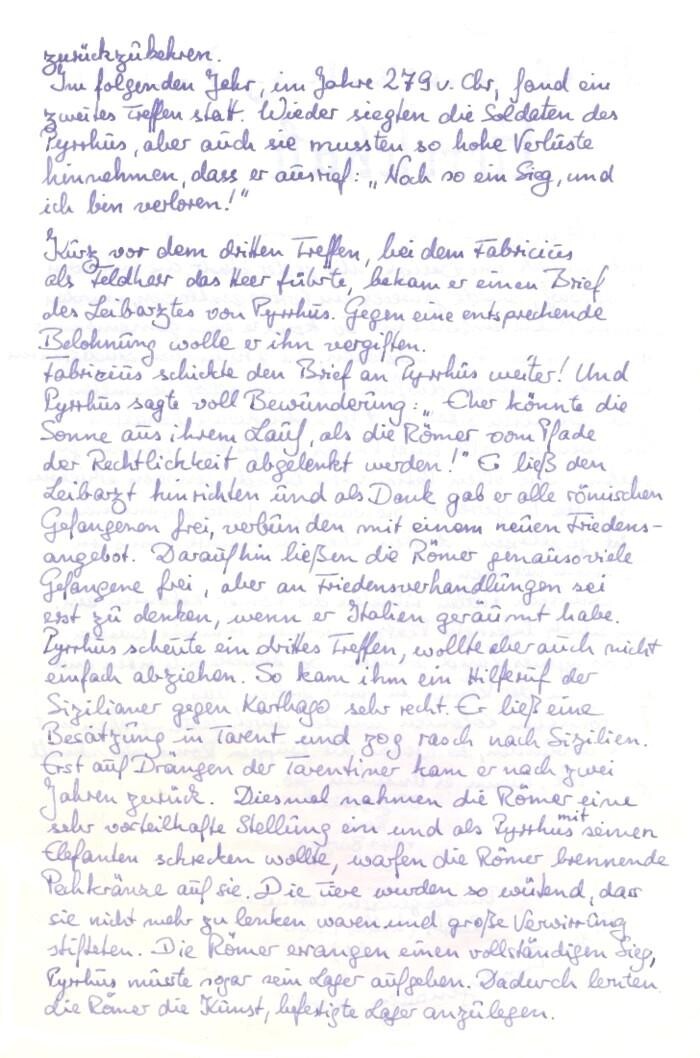 zurückzukehren.
Im folgenden Jahr, im Jahre 279 v. Chr, fand ein
zweites Treffen statt. Wieder siegten die Soldaten des
Pyrrhus, aber auch sie mussten so hohe Verluste
hinnehmen, dass er ausrief: „Noch so ein Sieg, und
ich bin verloren!"
Kurz vor dem dritten Treffen, bei dem Fabricius
als Feldherr das Heer führte, bekam er einen Brief
des Leibarztes von Pyrrhus. Gegen eine entsprechende
Belohnung wolle er ihn vergiften.
Fabricius schickte den Brief an Pyrrhus weiter! Und
Pyrrhus sagte voll Bewunderung: „Eher könnte die
Sonne aus ihrem Lauf, als die Römer vom Pfade
der Rechtlichkeit abgelenkt werden!" Er ließ den
Leibarzt hinrichten und als Dank gab er alle römischen
Gefangenen frei, verbunden mit einem neuen Friedens-
angebot. Daraufhin ließen die Römer genausoviele
Gefangene frei, aber an Friedensverhandlungen sei
erst zu denken, wenn er Italien geräumt habe.
Pyrrhus scheute ein drittes Treffen, wollte aber auch nicht
einfach abziehen. So kam ihm ein Hilferuf der
Sizilianer gegen Karthago sehr recht. Er ließ eine
Besatzung in Tarent und zog rasch nach Sizilien.
Erst auf Drängen der Tarentiner kam er nach zwei
Jahren zurück. Diesmal nahmen die Römer eine
sehr vorteilhafte Stellung ein und als Pyrrhus mit seinen
Elefanten schrecken wollte, warfen die Römer brennende
Pechkränze auf sie. Die Tiere wurden so wütend, dass
sie nicht mehr zu lenken waren und große Verwirrung
stifteten. Die Römer errangen einen vollständigen Sieg,
Pyrrhus musste sogar sein Lager aufgeben. Dadurch lernten
die Römer die Kunst, befestigte Lager anzulegen.